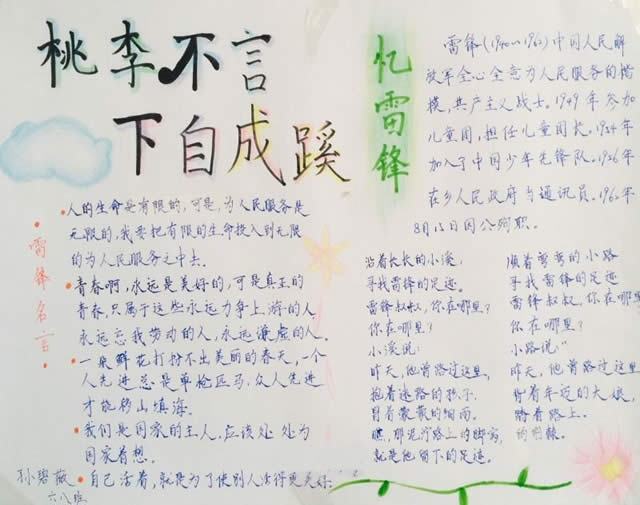 桃李不言
下自成蹊
忆雷锋
雷锋(1940~1962)中国人民解
放军全心全意为人民服务的楷
模,共产主义战士。1949年参加
儿童团,担任儿童团长。1954年
加入了中国少年先锋队。1956年
在乡人民政府当通讯员。1962年
8月15日因公殉职。
雷锋名言:
人的生命是有限的,可是,为人民服务是
无限的,我要把有限的生命投入到无限
的为人民服务之中去。
青春啊,永远是美好的,可是真正的
青春,只属于这些永远力争上游的人
永远忘我劳动的人,永远谦虚的人。
一朵鲜花打扮不出美丽的春天,一个
人先进总是单枪匹马,众人先进
才能移山填海。
我们是国家的主人,应该处处为
国家着想。
自己活着,就是为了使别人活得更美好
孙碧薇
六八班
沿着长长的小溪,
寻找雷锋的足迹。
雷锋叔叔,你在哪里?
你在哪里?
小溪说:
昨天,他曾路过这里,
抱着迷路的孩子
冒着蒙蒙的细雨。
瞧,那泥泞路上的脚窝,
就是他留下的足迹。
顺着弯弯的小路
寻找雷锋的足迹
雷锋叔叔,你在哪里
你在哪里?
小路说:"
昨天,他曾路过这里,
背着年迈的大娘,
踏着路上。
的荆棘。